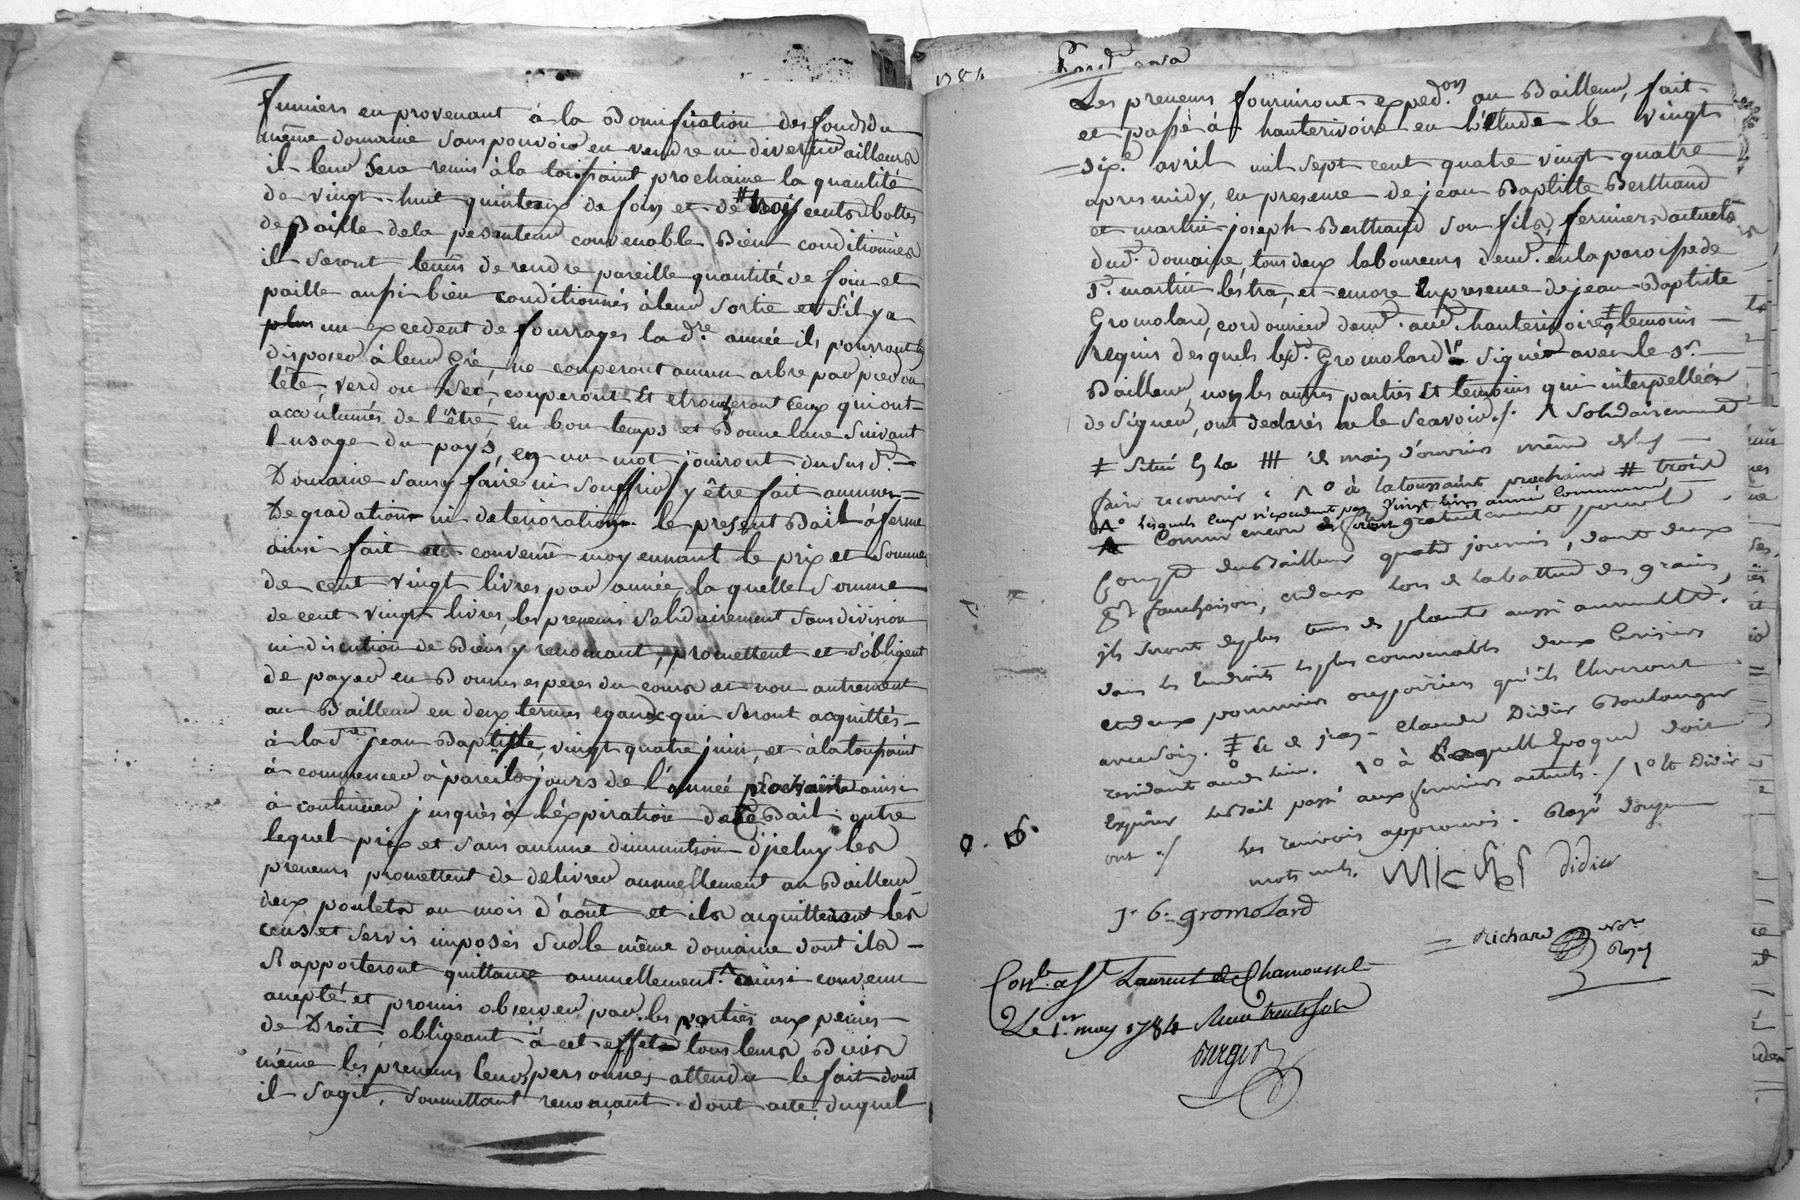 fumiers en provenant à la Bonification des fonds du
même domaine sans pouvoir en vendre ni divertir ailleurs
il leur sera remis à la toussaint prochaine la quantité
de vingt-huit quinteaux de foin et de # trois cents bottes
de Paille de la pesanteur convenable Bien conditionnés
il seront tenus de rendre pareille quantité de foin et
paille aussi bien conditionnés à leur sortie et s'il y a
plus un excedent de fourrages la dre année ils pourront en
disposer à leur Gré, ne couperont aucun arbre par pied ou
tête, verd ou sec, couperont et etronzeront ceux qui ont
accoutumés de l'être, en bon temps et Bonne lune suivant
l'usage du pays, en un mot jouiront du susd.
Domaine sans y faire ni souffrir y être fait aucunes
Degradations ni deteriorations. le present Bail à ferme
ainsi fait et convenu moyennant le prix et somme
de cent vingt livres par année, laquelle somme
de cent vingt livres, les preneurs solidairement sans division
ni discution de Biens y renonçant, promettent et s'obligent
de payer en Bonnes especes du cours et non autrement
au Bailleur en deux termes egaux qui seront acquittés
à la St jean Baptiste, vingt quatre juin, et à la toussaint
à commencer à pareils jours de l'année prochaine ainsi
à continuer jusques à l'éxpiration de ce Bail outre
lequel prix et sans aucune diminution d'jceluy les
preneurs promettent de delivrer annuellement au Bailleur
deux poulets au mois d'août et ils acquitteront les
cens et servis imposés sur le même domaine dont ils
Rapporteront quittance annuellement. ainsi convenu
accepté et promis observer par les parties aux peines
de Droit, obligeant à cet effet tous leurs Biens
même les preneurs leurs personnes, attendu le fait dont
il sagit, soumettant renonçant. dont acte, duquel
1784
Les preneurs fourniront expedon au Bailleur, fait
et passé à hauterivoire en l'étude le vingt
six avril mil sept cent quatre vingt quatre
apres midy, en presence de jean Baptiste Berthaud
et martin joseph Berthaud son fils, fermiers actuels
dud. domaine, tous deux laboureurs demt. en la paroisse de
St. martin lestra, et encore en presence de jean Baptiste
Gromolard, cordonnier demt. aud. hauterivoire ‡ temoins
requis desquels led. Gromolard 1° signé avec le sr.
Bailleur, non les autres parties et temoins qui interpellés
de signer, ont declarés ne le sçavoir ./. Λ solidairement
‡ situé en la # et main d'ouvriers même
faire recouvrir : Λ° à la toussaint prochaine # trois
Λ° lesquels ceux n'excedent pas vingt livres année commune
Comm encore de faire gratuitement pour le
Compte du Bailleur quatre journées, dont deux
fauchaisons, et deux lors de la batture des grains,
ils seront de plus tenus de planter aussi annuellement.
dans les Endroits les plus convenables deux Cerisiers
et deux pommiers ou poiriers qu'ils Eleveront
avec soin. ‡ et de jean-Claude Didier Boulanger
residant aud. lieu. 1° à laquelle Epoque doit
Expirer le Bail passé aux fermiers actuels ./. 1° et Didier
ont ./. les renvois approuvés. Rayé
mots nuls. Didier
J. B. gromolard
Richard Nore
Royal
Conlé. à St Laurent de Chamousset
Le 1er may 1784